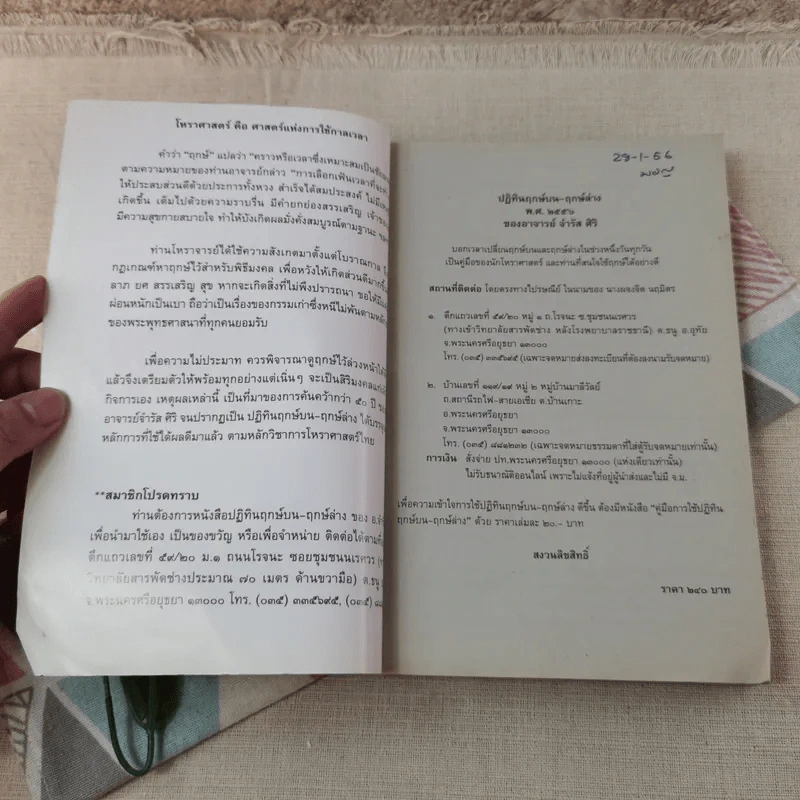 โหราศาสตร์ คือ ศาสตร์แห่งการใช้กาลเวลา
คำว่า "ฤกษ์" แปลว่า "คราวหรือเวลาซึ่งเหมาะสมเป็นชัย
ตามความหมายของท่านอาจารย์กล่าว "การเลือกเฟ้นเวลาที่จะ
ให้ประสบส่วนดีด้วยประการทั้งหวง สำเร็จได้สมประสงค์ ไม่มี
เกิดขึ้น เต็มไปด้วยความราบรื่น มีคำยกย่องสรรเสริญ เจ้า
มีความสุขกายสบายใจ ทำให้บังเกิดผลมั่งคั่งสมบูรณ์ตามฐานะ
ท่านโหราจารย์ได้ใช้ความสังเกตมาตั้งแต่โบราณกาล
กฏเกณฑ์หาฤกษ์ไว้สำหรับพิธีมงคล เพื่อหวังให้เกิดส่วนดีมาก
ลาภ ยศ สรรเสริญ สุข หากจะเกิดสิ่งที่ไม่พึงปรารถนา ขอให้
ผ่อนหนักเป็นเบา ถือว่าเป็นเรื่องของกรรมเก่าซึ่งหนีไม่พ้นตามหลัก
ของพระพุทธศาสนาที่ทุกคนยอมรับ
เพื่อความไม่ประมาท ควรพิจารณาดูฤกษ์ไว้ล่วงหน้า
แล้วจึงเตรียมตัวให้พร้อมทุกอย่างแต่เนิ่นๆ จะเป็นสิริมงคล
กิจการเอง เหตุผลเหล่านี้ เป็นที่มาของการค้นคว้ากว่า ๕๐ ปี
อาจารย์จำรัส ศิริ จนปรากฏเป็น ปฏิทินฤกษ์บน-ฤกษ์ล่าง ได้
หลักการที่ใช้ได้ผลดีมาแล้ว ตามหลักวิชาการโหราศาสตร์ไทย
**สมาชิกโปรดทราบ
ท่านต้องการหนังสือปฏิทินฤกษ์บน-ฤกษ์ล่าง ของ
เพื่อนำมาใช้เอง เป็นของขวัญ หรือเพื่อจำหน่าย ติดต่อได้ตาม
ตึกแถวเลขที่ ๕๙/๒๐ ม.๑ ถนนโรจนะ ซอยชุมชนนเรศวร
วิทยาลัยสารพัดช่างประมาณ ๗๐ เมตร ด้านขวามือ) ต.ธนู
จ.พระนครศรีอยุธยา ๑๓๐๐๐ โทร. (๐๓๕) ๓๓๕๖๙๕, (๐๓๕)
29-1-56
ปฏิทินฤกษ์บน-ฤกษ์ล่าง
พ.ศ. ๒๕๕๖
ของอาจารย์ จำรัส ศิริ
บอกเวลาเปลี่ยนฤกษ์บนและฤกษ์ล่างในช่วงหนึ่งวันทุกวัน
เป็นคู่มือของนักโหราศาสตร์ และท่านที่สนใจใช้ฤกษ์ได้อย่างดี
สถานที่ติดต่อ โดยตรงทางไปรษณีย์ ในนามของ นางผจงจิต นฤมิตร
๑. ตึกแถวเลขที่ ๕๙/๒๐ หมู่ ๑ ถ.โรจนะ ซ.ชุมชนนเรศวร
(ทางเข้าวิทยาลัยสารพัดช่าง หลังโรงพยาบาลราชธานี) ต.ธนู อ.อุทัย
จ.พระนครศรีอยุธยา ๑๓๐๐๐
โทร. (๐๓๕) ๓๓๕๖๙๕ (เฉพาะจดหมายส่งลงทะเบียนที่ต้องลงนามรับจดหมาย)
๒. บ้านเลขที่ ๑๑๙/๑๙ หมู่ ๒ หมู่บ้านมาลีวัลย์
ถ.สถานีรถไฟ-สายเอเซีย ต.บ้านเกาะ
อ.พระนครศรีอยุธยา
จ.พระนครศรีอยุธยา ๑๓๐๐๐
โทร. (๐๓๕) ๘๘๑๒๓๒ (เฉพาะจดหมายธรรมดาที่ใส่ตู้รับจดหมายเท่านั้น)
การเงิน สั่งจ่าย ปท.พระนครศรีอยุธยา ๑๓๐๐๐ (แห่งเดียวเท่านั้น)
ไม่รับธนาณัติออนไลน์ เพราะไม่แจ้งที่อยู่ผู้นำส่งและไม่มี จ.ม.
เพื่อความเข้าใจการใช้ปฏิทินฤกษ์บน-ฤกษ์ล่าง ดีขึ้น ต้องมีหนังสือ "คู่มือการใช้ปฏิทิน
ฤกษ์บน-ฤกษ์ล่าง" ด้วย ราคาเล่มละ ๒๐.- บาท
สงวนลิขสิทธิ์
ราคา ๒๔๐ บาท